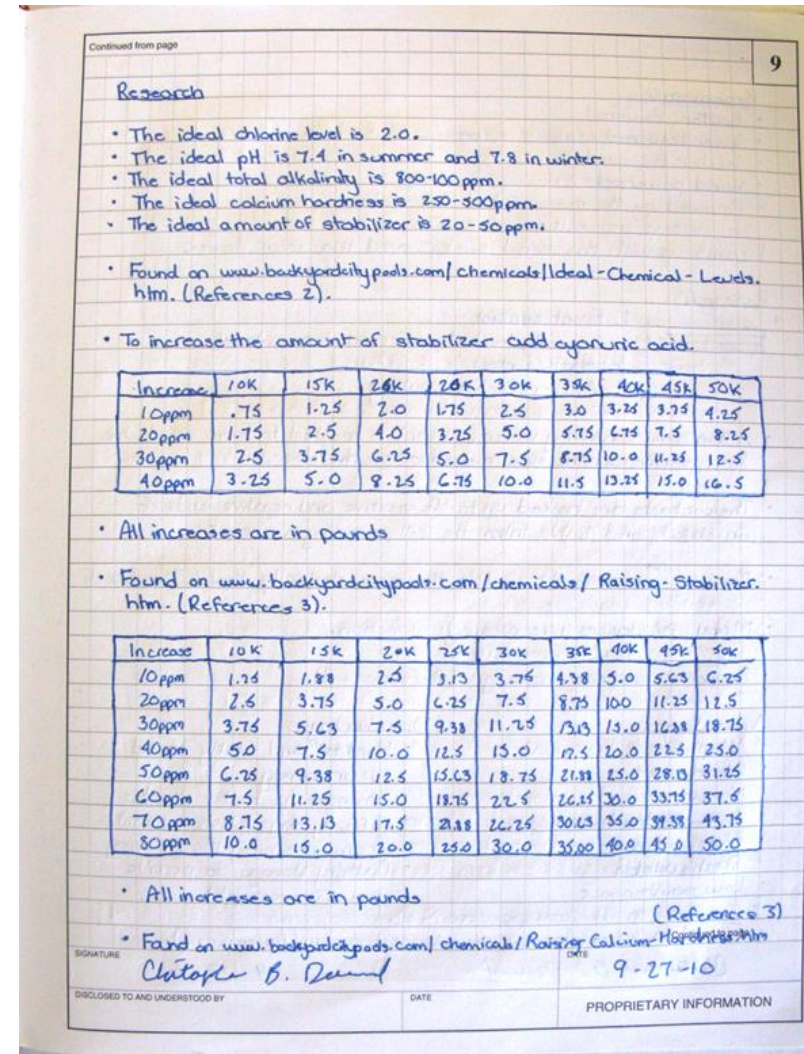 Continued from page
9
Research
• The ideal chlorine level is 2.0.
• The ideal pH is 7.4 in summer and 7.8 in winter.
• The ideal total alkalinity is 800-100ppm.
• The ideal calcium hardness is 250-500ppm.
• The ideal amount of stabilizer is 20-50ppm.
• Found on www.backyardcitypools.com/chemicals/Ideal-Chemical-Levels.
htm. (References 2).
• To increase the amount of stabilizer add cyanuric acid.
Increase 10K 15K 20K 30K 35K 40K 45K 50K
10ppm .75 1.25 2.0 1.75 2.5 3.0 3.25 3.75 4.25
20ppm 1.75 2.5 4.0 3.25 5.0 5.75 6.75 7.5 8.25
30ppm 2.5 3.75 6.25 5.0 7.5 8.75 10.0 11.25 12.5
40ppm 3.25 5.0 8.25 6.75 10.0 11.5 13.25 15.0 16.5
• All increases are in pounds
• Found on www.backyardcitypools.com/chemicals/Raising-Stabilizer.
htm. (References 3).
Increase 10K 15K 20K 25K 30K 35K 40K 45K 50K
10ppm 1.25 1.88 2.5 3.13 3.75 4.38 5.0 5.63 6.25
20ppm 2.5 3.75 5.0 6.25 7.5 8.75 100 11.25 12.5
30ppm 3.75 5.63 7.5 9.38 11.25 13.13 15.0 16.88 18.75
40ppm 5.0 7.5 10.0 12.5 15.0 17.5 20.0 22.5 25.0
50ppm 6.25 9.38 12.5 15.63 18.75 21.88 25.0 28.13 31.25
60ppm 7.5 11.25 15.0 18.75 22.5 26.25 30.0 33.75 37.5
70ppm 8.75 13.13 17.5 21.88 26.25 30.63 35.0 39.38 43.75
80ppm 10.0 15.0 20.0 25.0 30.0 35.00 40.0 45.0 50.0
• All increases are in pounds
(References 3)
• Found on www.backyardcitypools.com/chemicals/Raising-Calcium-Hardness.htm
SIGNATURE
B.
DATE
9-27-10
DISCLOSED TO AND UNDERSTOOD BY
DATE
PROPRIETARY INFORMATION